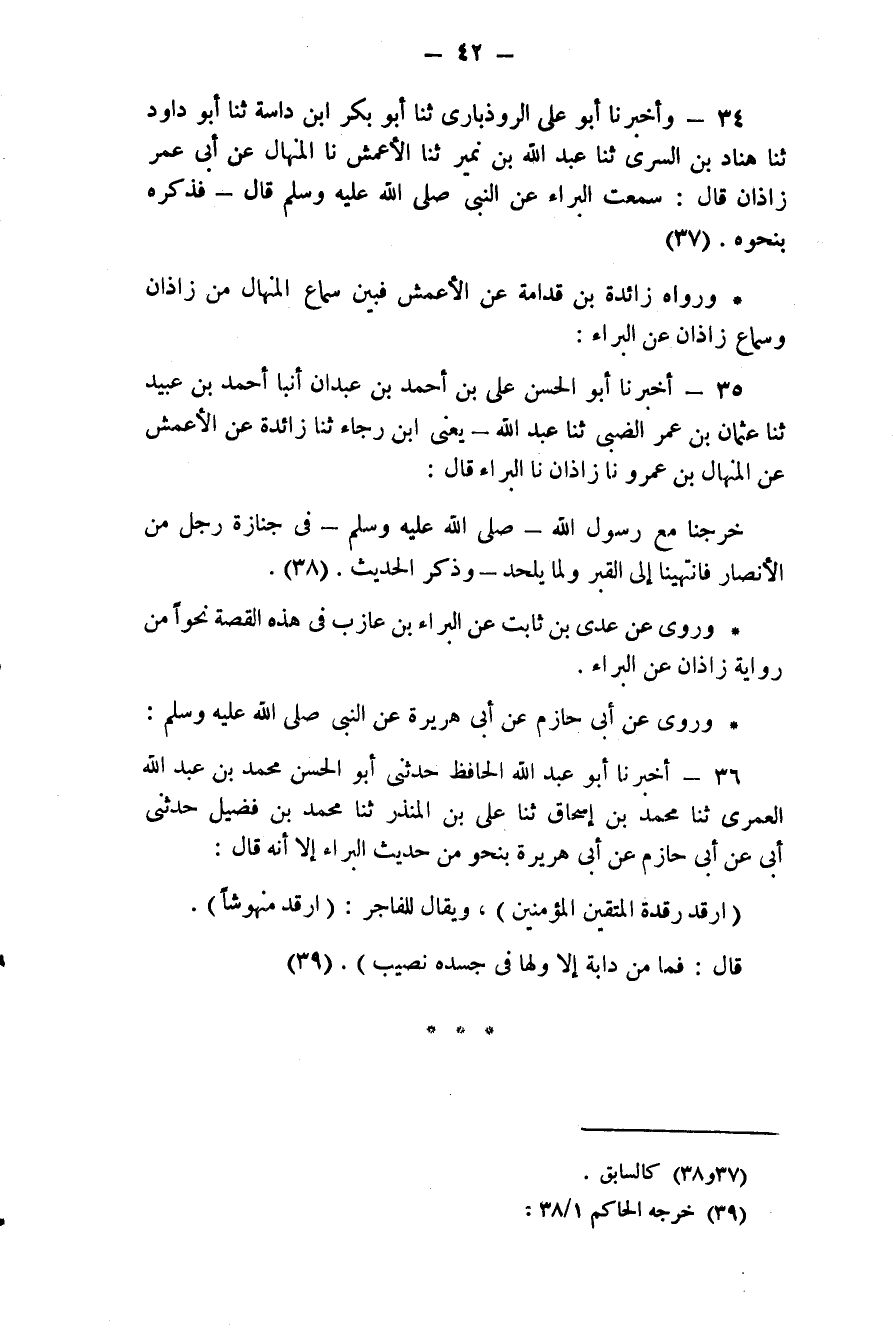 — ٤٢ —
٣٤ — وأخبرنا أبو على الروذبارى ثنا أبو بكر ابن داسة ثنا أبو داود
ثنا هناد بن السرى ثنا عبد الله بن نمير ثنا الأعمش نا المنهال عن أبى عمر
زاذان قال : سمعت البراء عن النبى صلى الله عليه وسلم قال — فذكره
بنحوه . (٣٧)
* ورواه زائدة بن قدامة عن الأعمش فبين سماع المنهال من زاذان
وسماع زاذان عن البراء :
٣٥ — أخبرنا أبو الحسن على بن أحمد بن عبدان أنبا أحمد بن عبيد
ثنا عثمان بن عمر الضبى ثنا عبد الله — يعنى ابن رجاء ثنا زائدة عن الأعمش
عن المنهال بن عمرو نا زاذان نا البراء قال :
خرجنا مع رسول الله — صلى الله عليه وسلم — فى جنازة رجل من
الأنصار فانتهينا إلى القبر ولما يلحد — وذكر الحديث . (٣٨) .
* وروى عن عدى بن ثابت عن البراء بن عازب فى هذه القصة نحواً من
رواية زاذان عن البراء .
* وروى عن أبى حازم عن أبى هريرة عن النبى صلى الله عليه وسلم :
٣٦ — أخبرنا أبو عبد الله الحافظ حدثنى أبو الحسن محمد بن عبد الله
العمرى ثنا محمد بن إسحاق ثنا على بن المنذر ثنا محمد بن فضيل حدثنى
أبى عن أبى حازم عن أبى هريرة بنحو من حديث البراء إلا أنه قال :
( ارقد رقدة المتقين المؤمنين ) ، ويقال للفاجر : ( ارقد منهوشاً ) .
قال : فما من دابة إلا ولها فى جسده نصيب ) . (٣٩)
* * *
(٣٧و٣٨) كالسابق .
(٣٩) خرجه الحاكم ٣٨/١ :